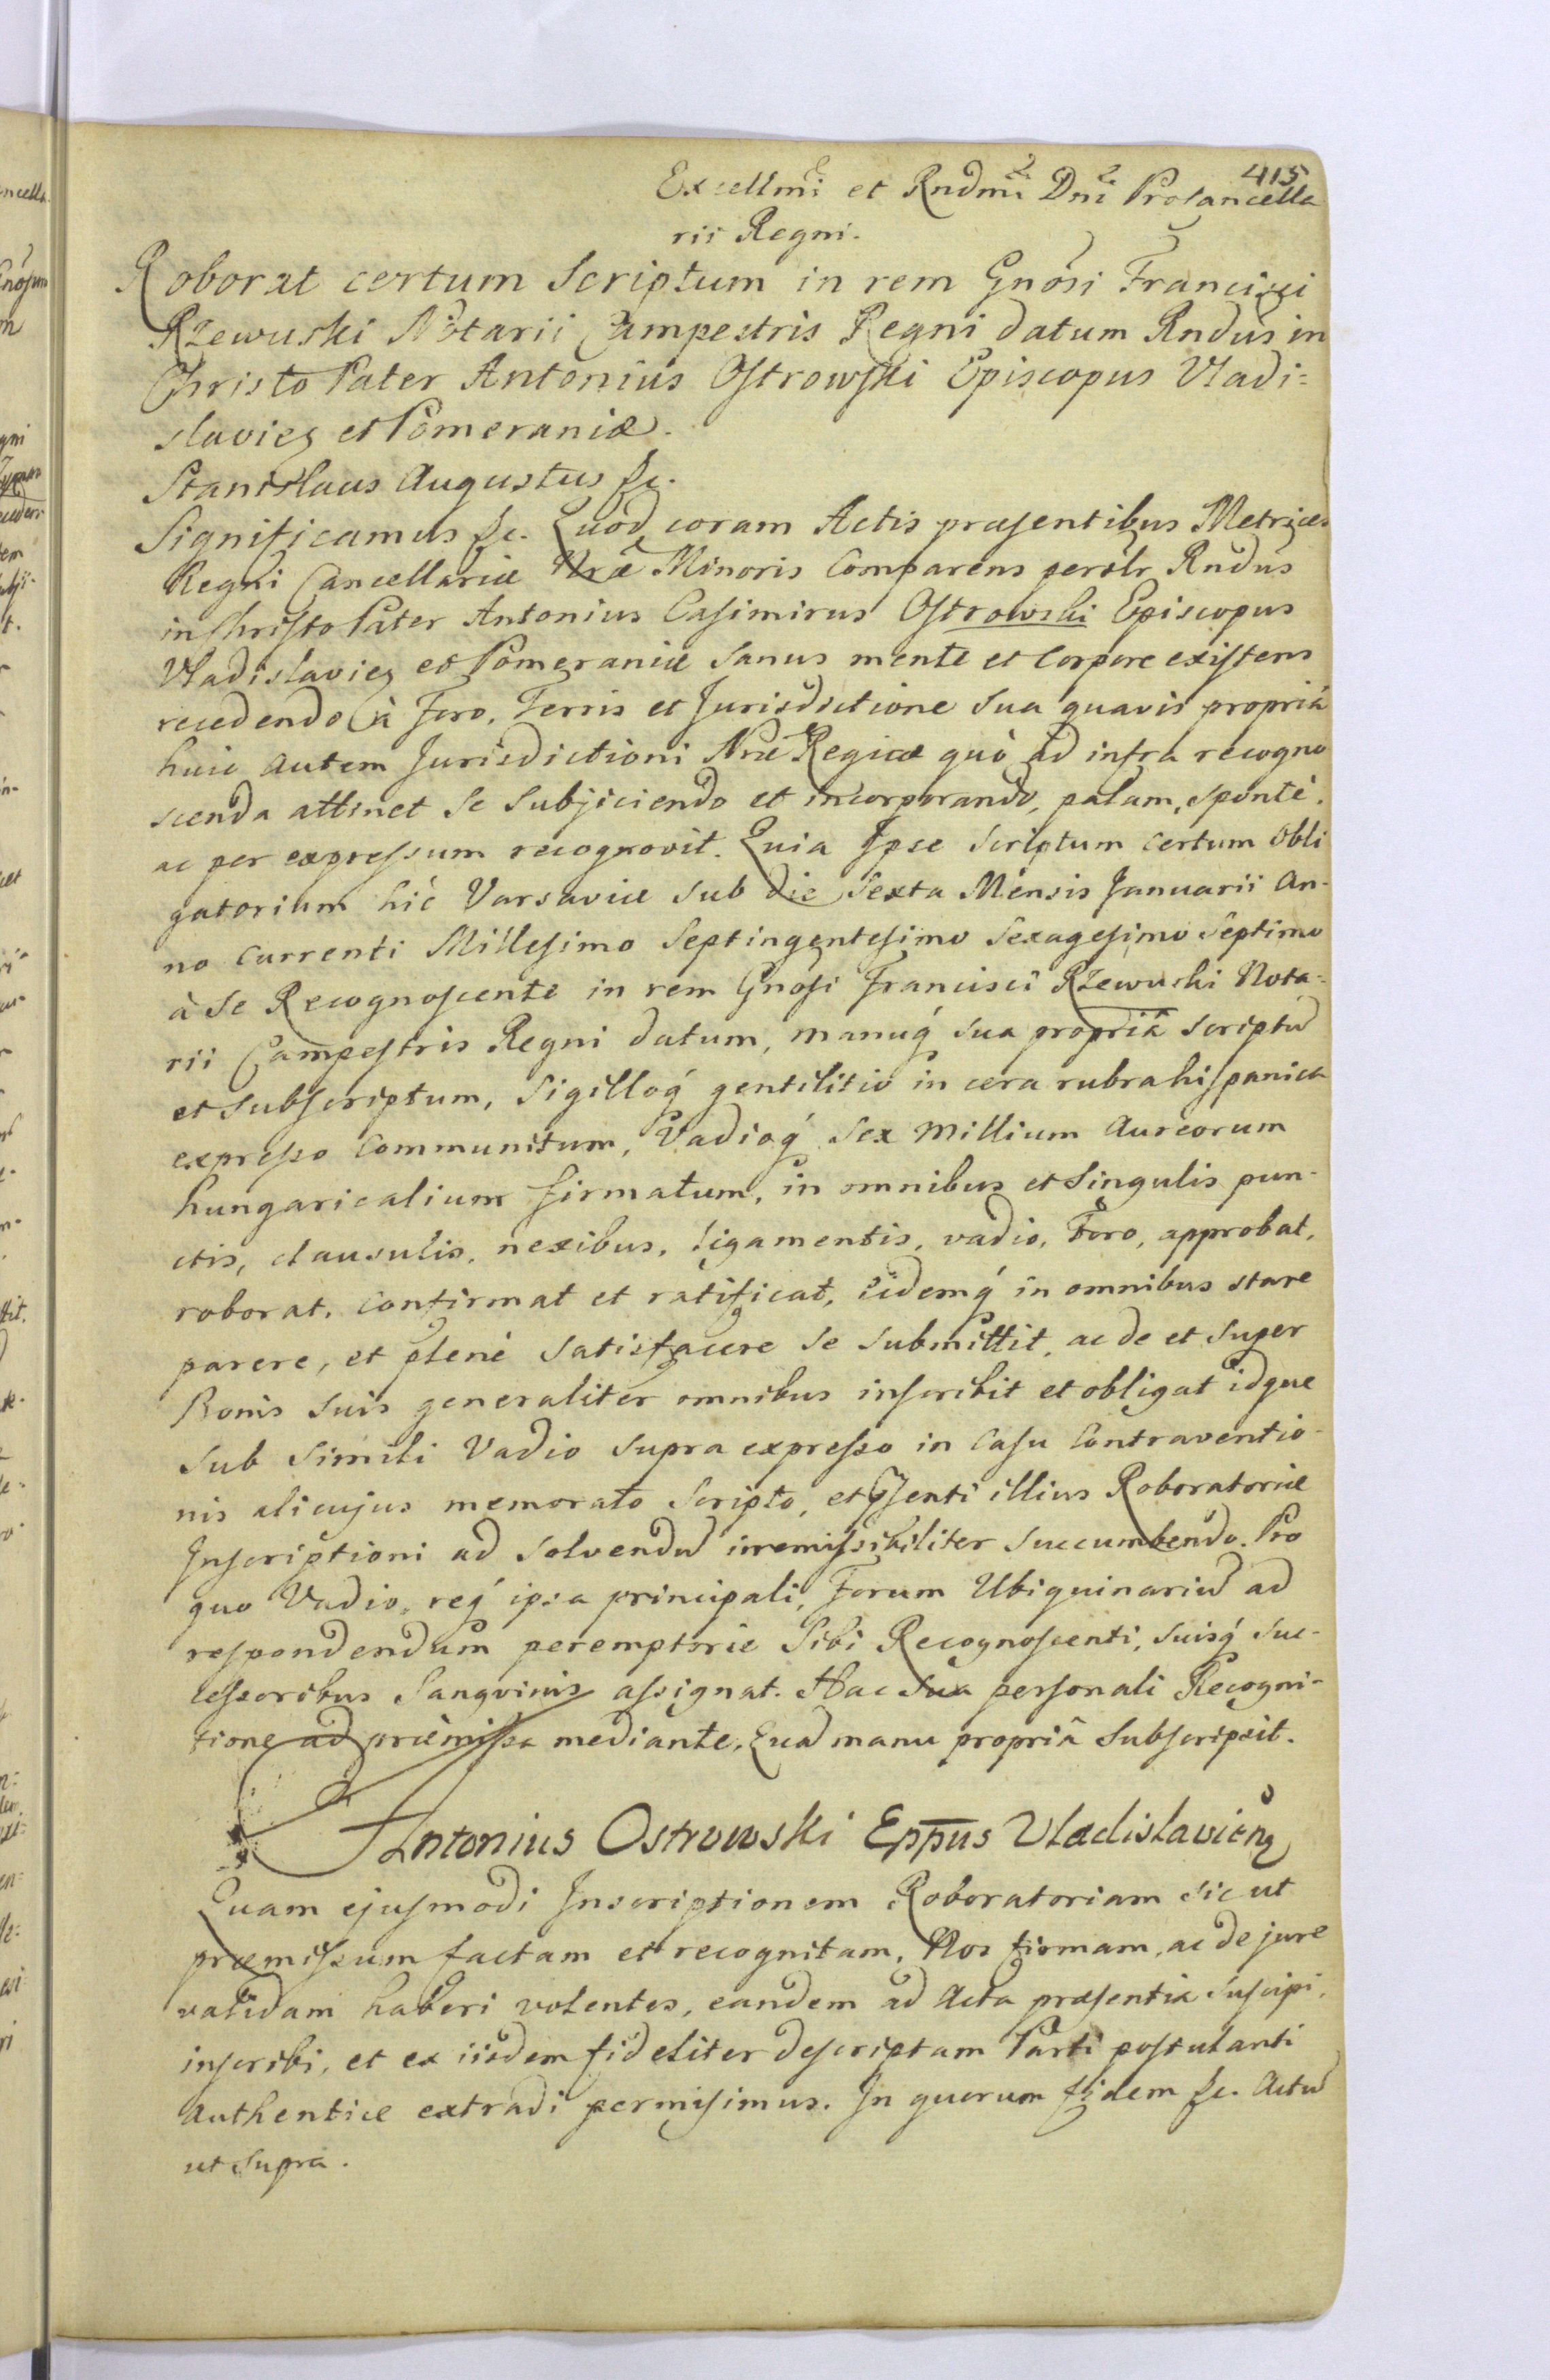 415
Excellmi et Rndmi Dni Procancella
rii Regni.
Roborat certum Scriptum in rem Gnosi Francisci
Rzewuski Notarii Campestris Regni datum Rndus in
Christo Pater Antonius Ostrowski Episcopus Vladi=
slavien et Pomeraniæ.
Stanislaus Augustus &c.
Significamus &c. Quod coram Actis præsentibus Metrices
Regni Cancellariæ Nræ Minoris Comparens persolr Rndus
in Christo Pater Antonius Casimirus Ostrowski Episcopus
Vladislavien et Pomeraniæ Sanus mente et Corpore existens
recedendo à Foro, Terris et Jurisdictione Sua quavis propriâ
huic autem Jurisdictioni Nræ Regiæ quò ad infra recogno
scenda attinet Se Subjiciendo et incorporando, palam, sponté,
ac per expressum recognovit. Quia Ipse Scriptum certum Obli
gatorium hic Varsaviæ Sub die Sexta Mensis Januarii An-
no Currenti Millesimo Septingentesimo Sexagesimo Septimo
à Se Recognoscente in rem Gnosi Francisci Rzewuski Nota-
rii Campestris Regni datum, manuq́ sua propriâ scriptũ
et Subscriptum, Sigilloq́ gentilitio in cera rubra hispanica
expresso Communitum, Vadioq́ Sex Millium Aureorum
hungaricalium firmatum, in omnibus et Singulis pun-
ctis, clausulis, nexibus, ligamentis, vadio, Foro, approbat,
roborat, confirmat et ratificat, iidemq́ in omnibus stare
parere, et plené Satisfacere Se Submittit, ac de et Super
Bonis Suis generaliter omnibus inscribit et obligat idque
Sub Simili Vadio Supra expresso in Casu Contraventio-
nis alicujus memorato Scripto, et pſenti illius Roboratoriæ
Inscriptioni ad Solvendũ irremissibiliter Succumbendo. Pro
quo Vadio, req́ ipsa principali, Forum Ubiquinariũ ad
respondendum peremptorie Sibi Recognoscenti, Suisq́ Suc-
cessoribus Sangvinis assignat. Hac Sua personali Recogni-
tione ad præmissa mediante. Quã manu propriâ Subscripsit.
Antonius Ostrowski Eppus Vladislavien
Quam ejusmodi Inscriptionem Roboratoriam sic ut
præmissum factam et recognitam, Nos firmam, ac de jure
validam haberi volentes, eandem ad Acta præsentia Suscipi,
inscribi, et ex iisdem fideliter descriptam Parti postulanti
Authenticé extradi permisimus. In quorum fidem &c. Actũ
ut Supra.